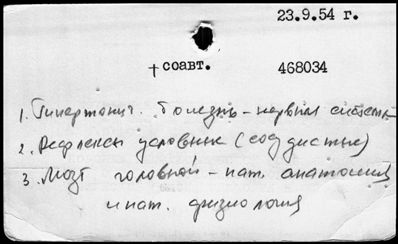 23.9.54 г.
†соавт. 468034
1. Гипертонич. болезнь - нервная система
2. Рефлексы условные (сосудистые)
3. Мозг головной - пат. анатомия
и пат. физиология